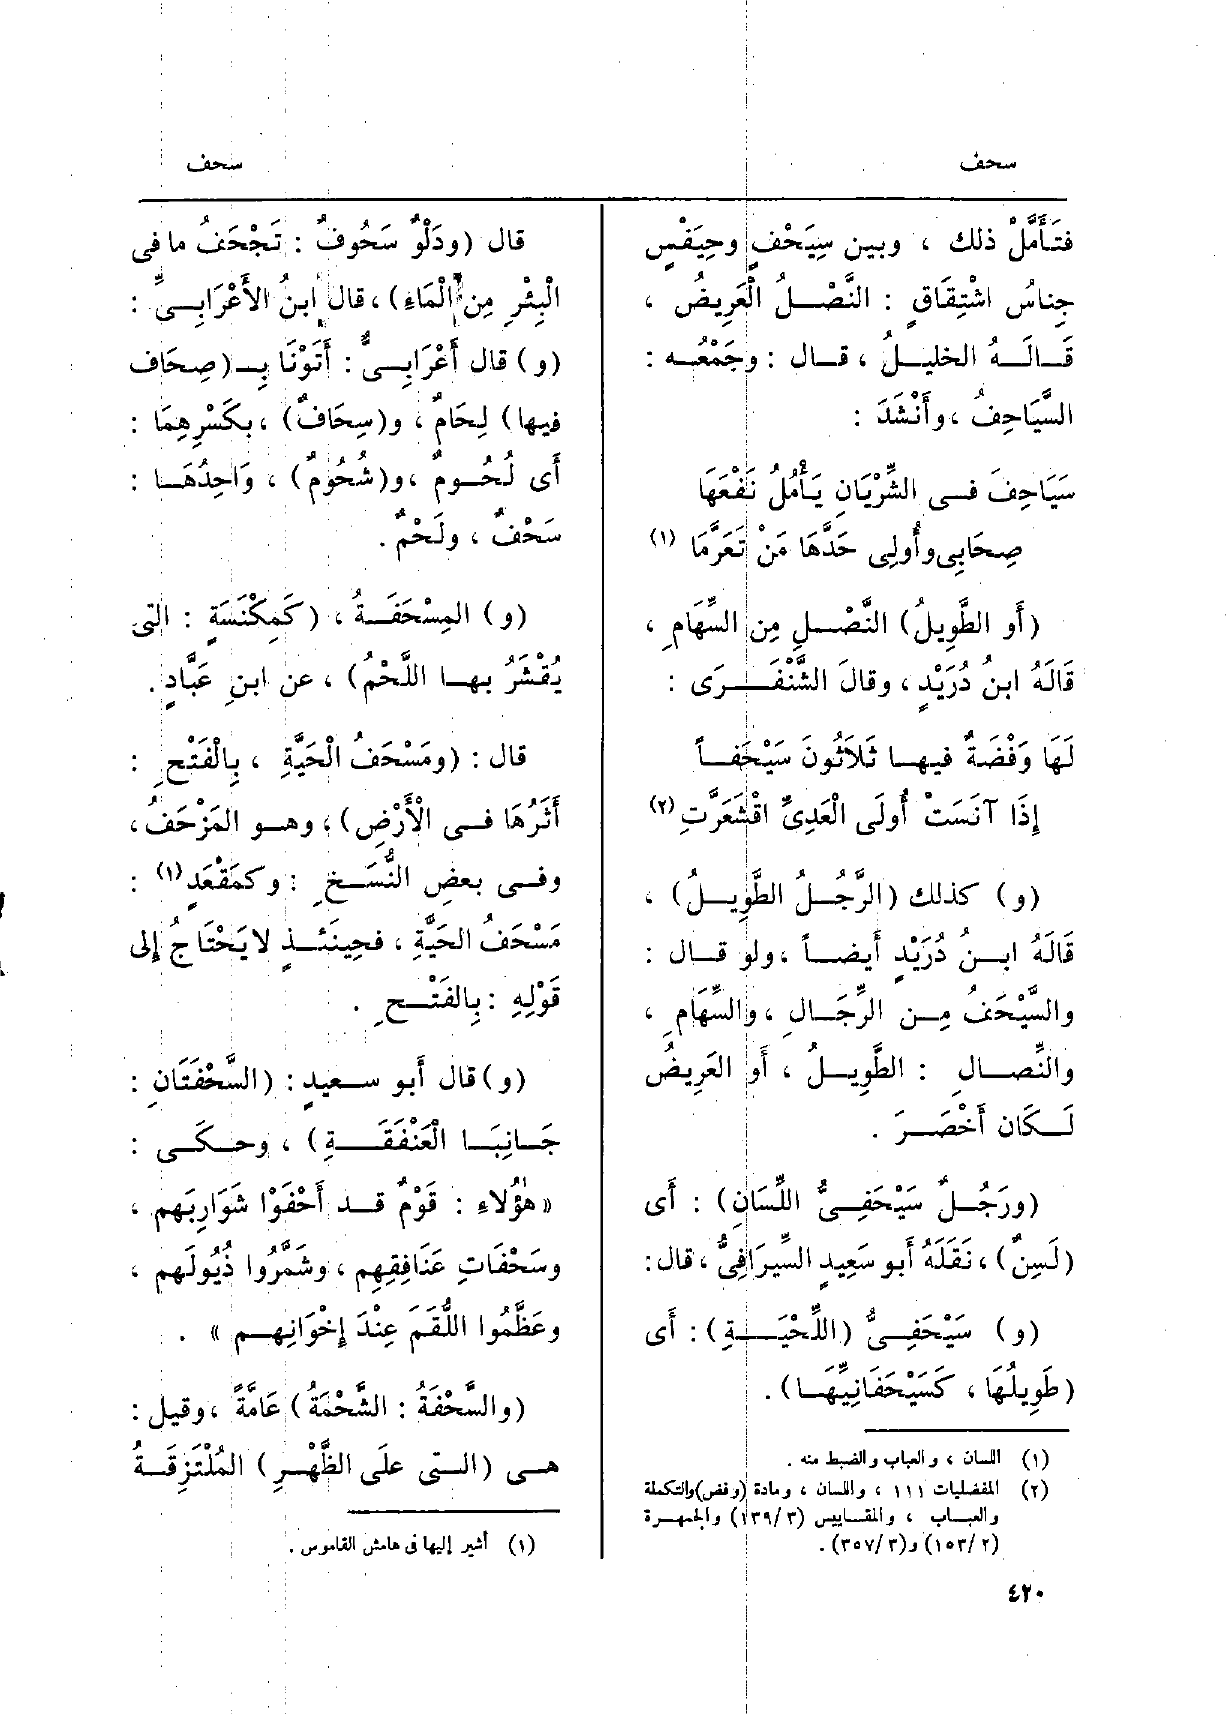 سحف
سحف
فتَأَمَّلْ ذلك ، وبين سِيَحْفٍ وحِيَفْسٍ
جِناسُ اشْتِقَاقٍ : النَّصْلُ الْعَرِيضُ ،
قَالَهُ الخليلُ ، قال : وجَمْعُه :
السَّيَاحِفُ ، وأَنْشَدَ :
سَيَاحِفَ فى الشِّرْيَانِ يَأْمُلُ نَفْعَهَا
صِحَابِى وأُولِى حَدَّهَا مَنْ تَعَرَّمَا (١)
(أو الطَّوِيلُ) النَّصْلِ مِن السِّهَامِ ،
قَالَهُ ابنُ دُرَيْدٍ ، وقالَ الشَّنْفَرَى :
لَهَا وَفْضَةٌ فيها ثَلاَثُونَ سَيْحَفاً
إِذَا آنَسَتْ أُولَى الْعَدِىِّ اقْشَعَرَّتِ (٢)
(و) كذلك (الرَّجُلُ الطَّوِيلُ) ،
قَالَهُ ابنُ دُرَيْدٍ أَيضاً ، ولو قال :
والسَّيْحَفُ مِن الرِّجَالِ ، والسِّهَامِ ،
والنِّصَالِ : الطَّوِيلُ ، أَو العَرِيضُ
لَكَان أَخْصَرَ .
(ورَجُلٌ سَيْحَفِىُّ اللِّسَانِ) : أَى
(لَسِنٌ) ، نَقَلَهُ أبو سَعِيدٍ السِّيرَافِىُّ ، قال :
(و) سَيْحَفِىُّ (اللِّحْيَةِ) : أَى
(طَوِيلُهَا ، كَسَيْحَفَانِيِّهَا) .
(١) اللسان ، والعباب والضبط منه .
(٢) المفضليات ١١١ ، واللسان ، ومادة (وفض) والتكملة
والعباب ، والمقاييس (١٣٩/٣) والجمهرة
(١٥٣/٢) و(٣٥٧/٣) .
قال (ودَلْوٌ سَحُوفٌ : تَجْحَفُ ما فى
الْبِئْرِ مِن الْمَاءِ) ، قال ابنُ الأَعْرَابِىِّ :
(و) قال أَعْرَابِىٌّ : أَتَوْنَا بِـ (صِحَاف
فيها) لِحَامٌ ، و(سِحَافٌ) ، بكَسْرِهِمَا :
أَى لُحُومٌ ، و(شُحُومٌ) ، وَاحِدُهَا :
سَحْفٌ ، ولَحْمٌ .
(و) المِسْحَفَةُ ، (كَمِكْنَسَةٍ : التى
يُقْشَرُ بها اللَّحْمُ) ، عن ابنِ عَبَّادٍ .
قال : (ومَسْحَفُ الْحَيَّةِ ، بِالْفَتْحِ :
أَثَرُهَا فى الأَرْضِ) ، وهو المَزْحَفُ ،
وفى بعضِ النُّسَخِ : وكمَقْعَدٍ (١) :
مَسْحَفُ الحَيَّةِ ، فحِينَئذٍ لا يَحْتَاجُ إلى
قَوْلِهِ : بِالفَتْحِ .
(و) قال أَبو سعيدٍ : (السَّحْفَتَانِ :
جَانِبَا الْعَنْفَقَةِ) ، وحكى :
« هٰؤُلاءِ : قَوْمٌ قد أَحْفَوْا شَوَارِبَهم ،
وسَحْفَاتِ عَنَافِقِهم ، وشَمَّرُوا ذُيُولَهم ،
وعَظَّمُوا اللُّقَمَ عِنْدَ إِخْوَانِهم » .
(والسَّحْفَةُ : الشَّحْمَةُ) عَامَّةً ، وقيل :
هى (التى علَى الظَّهْرِ) المُلْتَزِقَةُ
(١) أشير إليها فى هامش القاموس .
٤٢٠